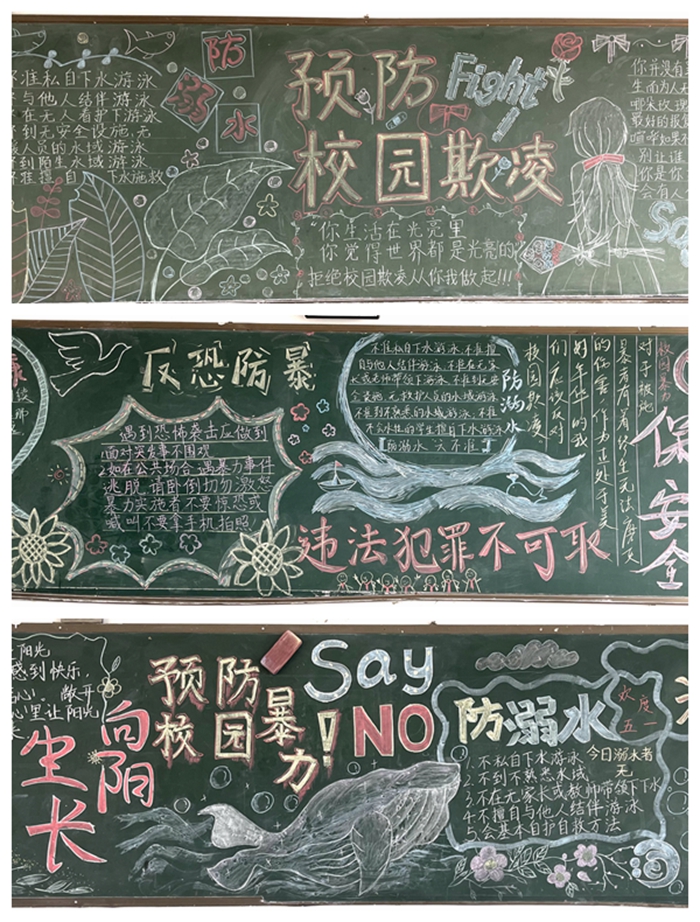 防
溺
水
准私自下水游泳
与他人结伴游泳
在无人看护下游泳
到无安全设施,无
人员的水域游泳
到陌生水域游泳
准擅自下水施救
预防
Fight!
校园欺凌
"你生活在光亮里
你觉得世界都是光亮的
拒绝校园欺凌从你我做起!!!
你并没有
生而为人
最好的报
别让谁
你是你
会有人
反恐防暴
遇到恐怖袭击应做到
面对突发事不围观
2.如在公共场合遇暴力事件
逃脱请卧倒切勿激怒
暴力实施者不要惊恐或
喊叫不要拿手机拍照!
不准私自下水游泳不准擅
自与他人结伴游泳不准在无家
长或老师带领下游泳不准到无安
全设施无救护人员的水域游泳
不准到不熟悉的水域游泳不准
不会水性的学生擅自下水施救
防溺水六不准
防溺水
校园欺凌
们应该反对
好年华的我
的伤害作为正处于美
暴者有着终生无法磨灭
对于被施
校园暴力
保
安
全
违法犯罪不可取
阳光
感到快乐,
心,敞开
心里让阳光
向阳
生长
预防
校园暴力!
Say
NO
防溺水
欢度
五一
1.不私自下水游泳
2.不到不熟悉水域
3.不在无家长或教师带领下下水
4.不擅自与他人结伴游泳
5.会基本自护自救方法
今日溺水者
无